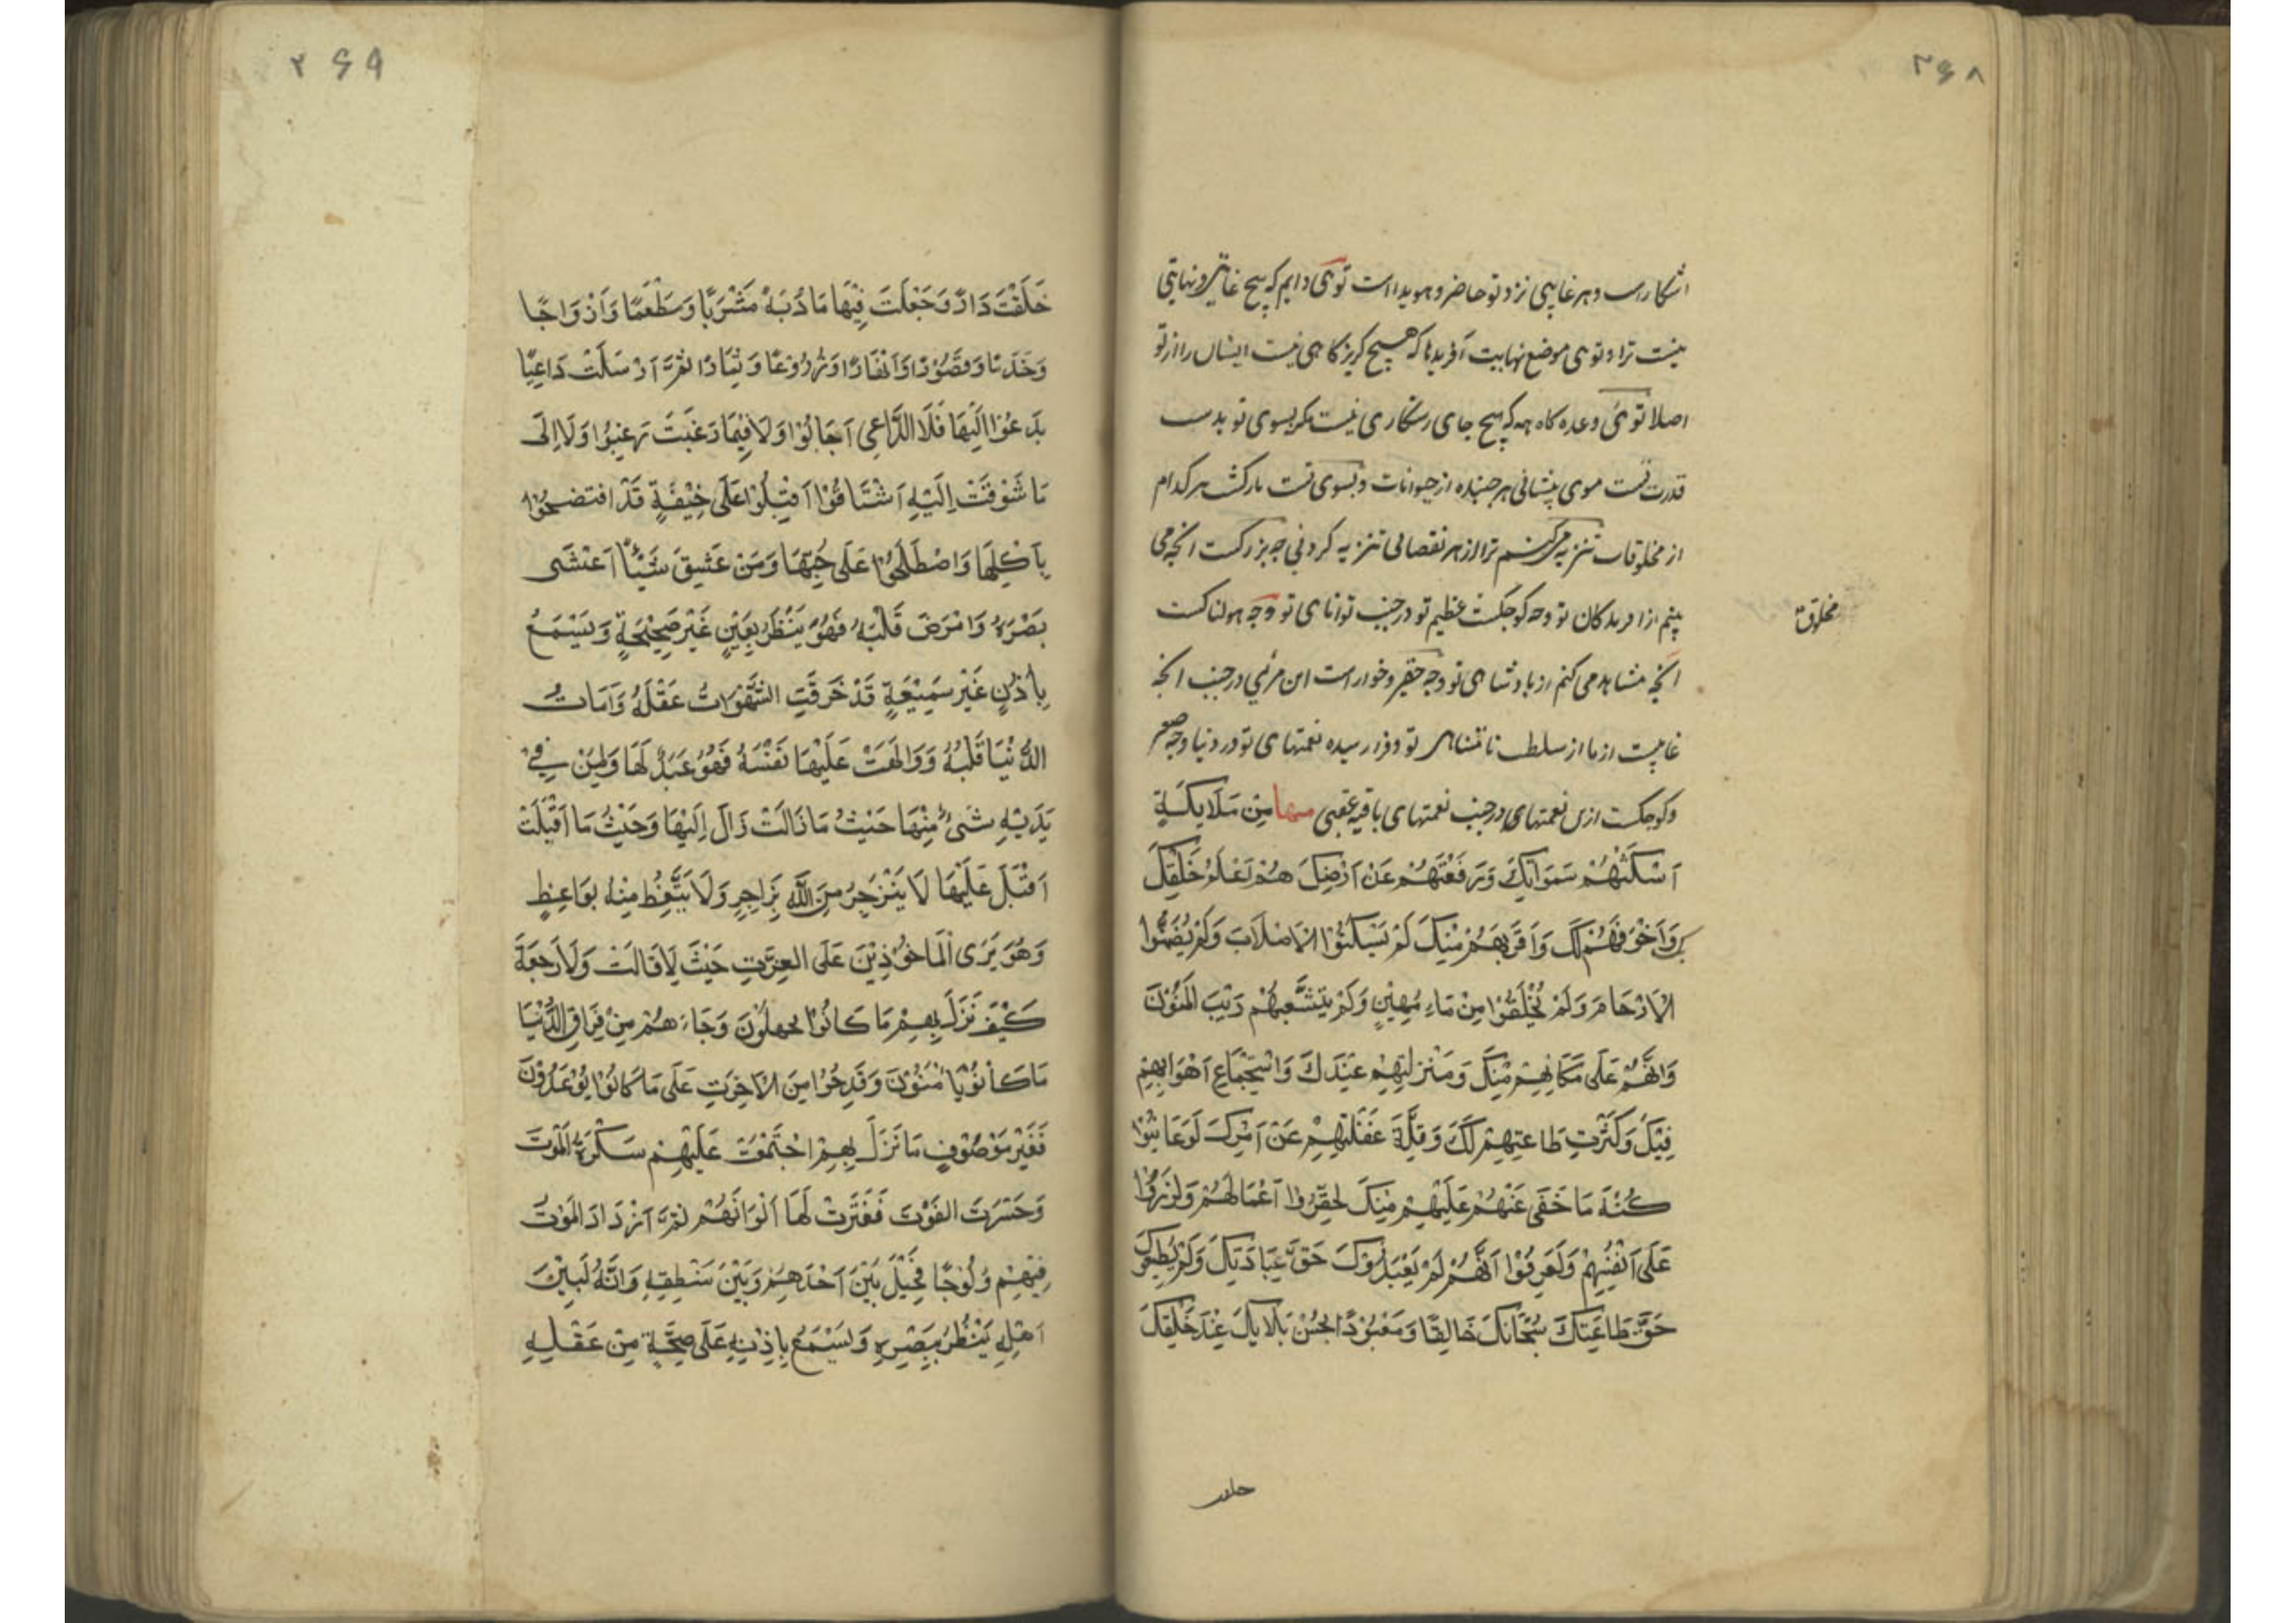 ۲۶۸
اشکاراست و هر غایبی نزد تو حاضر و هویداست توئی دایم که هیچ غایتی و نهایتی
نیست ترا و توی موضع نهایت آفریدها که هیچ گریزگاهی نیست ایشان را از تو
اصلا توئی وعده گاه همه که هیچ جای رستگاری نیست مگر بسوی تو بدست
قدرت تست موی پیشانی هر جنبنده از حیوانات و بسوی تست بازگشت هر کدام
از مخلوقات تنزیه میکنم ترا از هر نقصانی تنزیه کردنی چه بزرگست انچه می
بینم از افریدگان تو و چه کوچکست عظیم تو در جنب توانای تو و چه هولناکست
مخلوق
انچه مشاهده می کنم از پادشاهی تو و چه حقیر و خوار است این مرئی در جنب انچه
غایبست از ما از سلطنت نامتناهی تو و فرا رسیده نعمتهای تو در دنیا و چه صغیر
و کوچکست ازین نعمتهای در جنب نعمتهای باقیه عقبی منها مِنْ مَلَایِکَةٍ
اَسْکَنْتَهُمْ سَمَوَاتِکَ وَرَفَعْتَهُمْ عَنْ اَرْضِکَ هُمْ اَعْلَمُ خَلْقِکَ
بِکَ وَاَخْوَفُهُمْ لَکَ وَاَقْرَبُهُمْ مِنْکَ لَمْ یَسْکُنُوْا الْاَصْلَابَ وَلَمْ یُضَمَّنُوا
الْاَرْحَامَ وَلَمْ یُخْلَقُوْا مِنْ مَاءٍ مَهِیْنٍ وَلَمْ یَتَشَعَّبْهُمْ رَیْبَ الْمَنُوْنَ
وَاِنَّهُمْ عَلَی مَکَانِهِمْ مِنْکَ وَمَنْزِلَتِهِمْ عِنْدَکَ وَاسْتِجْمَاعِ اَهْوَایِهِمْ
فِیْکَ وَکَثْرَتِ طَاعَتِهِمْ لَکَ وَقِلَّةِ غَفْلَتِهِمْ عَنْ اَمْرِکَ لَوْ عَایَنُوْا
کُنْهَ مَا خَفَی عَنْهُمْ عَلَیْهِمْ مِنْکَ لَحَقَّرُوا اَعْمَالَهُمْ وَلَزَرَوْا
عَلَی اَنْفُسِهِمْ وَلَعَرَفُوْا اَنَّهُمْ لَمْ یَعْبُدُوْکَ حَقَّ عِبَادَتِکَ وَلَمْ یُطِیْعُوْکَ
حَقَّ طَاعَتِکَ سُبْحَانَکَ خَالِقًا وَمَعْبُوْدًا بِحُسْنِ بَلَایِکَ عِنْدَ خَلْقِکَ
خلقت
۲۶۹
خَلَقْتَ دَارًا وَجَعَلْتَ فِیْهَا مَادُبَةً مَشْرَبًا وَمَطْعَمًا وَاَزْوَاجًا
وَخَدَمًا وَقُصُوْرًا وَاَنْهَارًا وَزُرُوْعًا وَثِمَارًا ثُمَّ اَرْسَلْتَ دَاعِیًا
یَدْعُوْا اِلَیْهَا فَلَا الدَّاعِی اَجَابُوْا وَلَا فِیْمَا رَغَّبْتَ رَغِبُوْا وَلَا اِلَی
مَا شَوَّقْتَ اِلَیْهِ اَشْتَاقُوْا اَقْبَلُوْا عَلَی جِیْفَةٍ قَدْ افتضحُوْا
بِاَکْلِهَا وَاصْطَلَحُوْا عَلَی حُبِّهَا وَمَنْ عَشِقَ شَیْئًا اَعْشَی
بَصَرَهُ وَاَمْرَضَ قَلْبَهُ فَهُوَ یَنْظُرُ بِعَیْنٍ غَیْرِ صَحِیْحَةٍ وَیَسْمَعُ
بِاُذُنٍ غَیْرِ سَمِیْعَةٍ قَدْ خَرَقَتِ الشَّهَوَاتُ عَقْلَهُ وَاَمَاتَتِ
الدُّنْیَا قَلْبُهُ وَوَالَهَتْ عَلَیْهَا نَفْسَهُ فَهُوَ عَبْدٌ لَهَا وَلِمَنْ فِیْ
یَدَیْهِ شَیْءٌ مِنْهَا حَیْثُ مَا زَالَتْ زَالَ اِلَیْهَا وَحَیْثُ مَا اَقْبَلَتْ
اَقْبَلَ عَلَیْهَا لَا یَنْزَجِرُ مِنَ اللّٰهِ بِزَاجِرٍ وَلَا یَتَّعِظُ مِنْهُ بِوَاعِظٍ
وَهُوَ یَرَی الْمَاخُوْذِیْنَ عَلَی الغِرَّتِ حَیْثُ لَا اِقَالَتَ وَلَا رَجْعَةَ
کَیْفَ نَزَلَ بِهِمْ مَا کَانُوْا یَجْهَلُوْنَ وَجَاءَهُمْ مِنْ فِرَاقِ الدُّنْیَا
مَا کَانُوْا یَاْمَنُوْنَ وَقَدِمُوْا مِنَ الْاَخِرَتِ عَلَی مَا کَانُوْا یُوْعَدُوْنَ
فَغَیْرُ مَوْصُوْفٍ مَا نَزَلَ بِهِمْ اجْتَمَعَتْ عَلَیْهِمْ سَکْرَةُ الْمَوْتِ
وَحَسْرَتُ الفَوْتِ فَفَتَرَتْ لَهَا اَلْوَانُهُمْ ثُمَّ ازْدَادَ الْمَوْتُ
فِیْهِمْ وُلُوْجًا فَحِیْلَ بَیْنَ اَحَدِهِمْ وَبَیْنَ مَنْطِقِهِ وَاِنَّهُ لَبَیْنَ
اَهْلِهِ یَنْظُرُ بِبَصَرِهِ وَیَسْمَعُ بِاُذُنِهِ عَلَی صِحَّةٍ مِنْ عَقْلِهِ